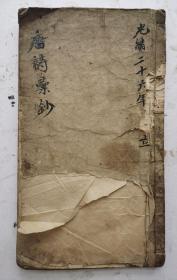 光緒二十六年 立
唐詩彙鈔